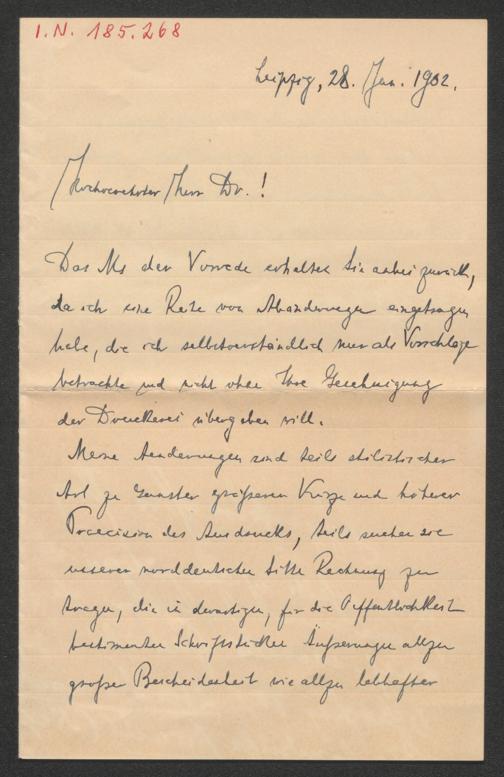 I.N. 185.268
Leipzig, 28. Jan. 1902.
Hochverehrter Herr Dr.!
Das Ms der Vorrede erhalten Sie anbei zurück,
da ich eine Reihe von Abänderungen eingetragen
habe, die ich selbstverständlich nur als Vorschläge
betrachte und nicht ohne Ihre Genehmigung
der Druckerei übergeben will.
Meine Aenderungen sind teils stilistischer
Art zu Gunsten größerer Kürze und höherer
Praecision des Ausdrucks, teils suchen sie
unserer norddeutschen Sitte Rechnung zu
tragen, die in derartigen, für die Oeffentlichkeit
bestimmten Schriftstücken Äußerungen allzu
großer Bescheidenheit wie allzu lebhafter